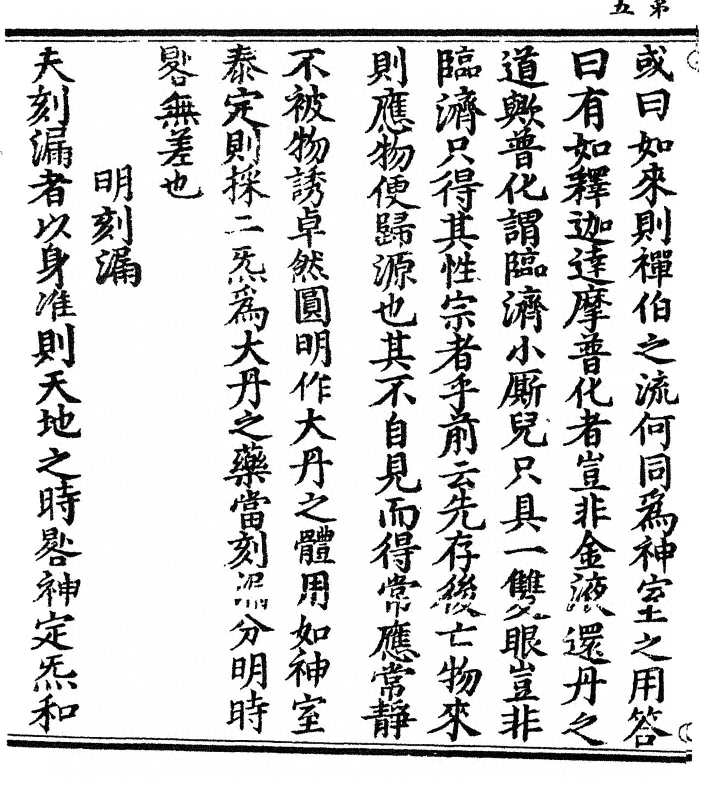 第五
或曰如來則禪伯之流何同爲神室之用答
曰有如釋迦達摩普化者豈非金液還丹之
道歟普化謂臨濟小厮兒只具一雙眼豈非
臨濟只得其性宗者乎前云先存後亡物來
則應物便歸源也其不自見而得常應常靜
不被物誘卓然圓明作大丹之體用如神室
泰定則採二炁爲大丹之藥當刻漏分明時
晷無差也
明刻漏
夫刻漏者以身准則天地之時晷神定炁和